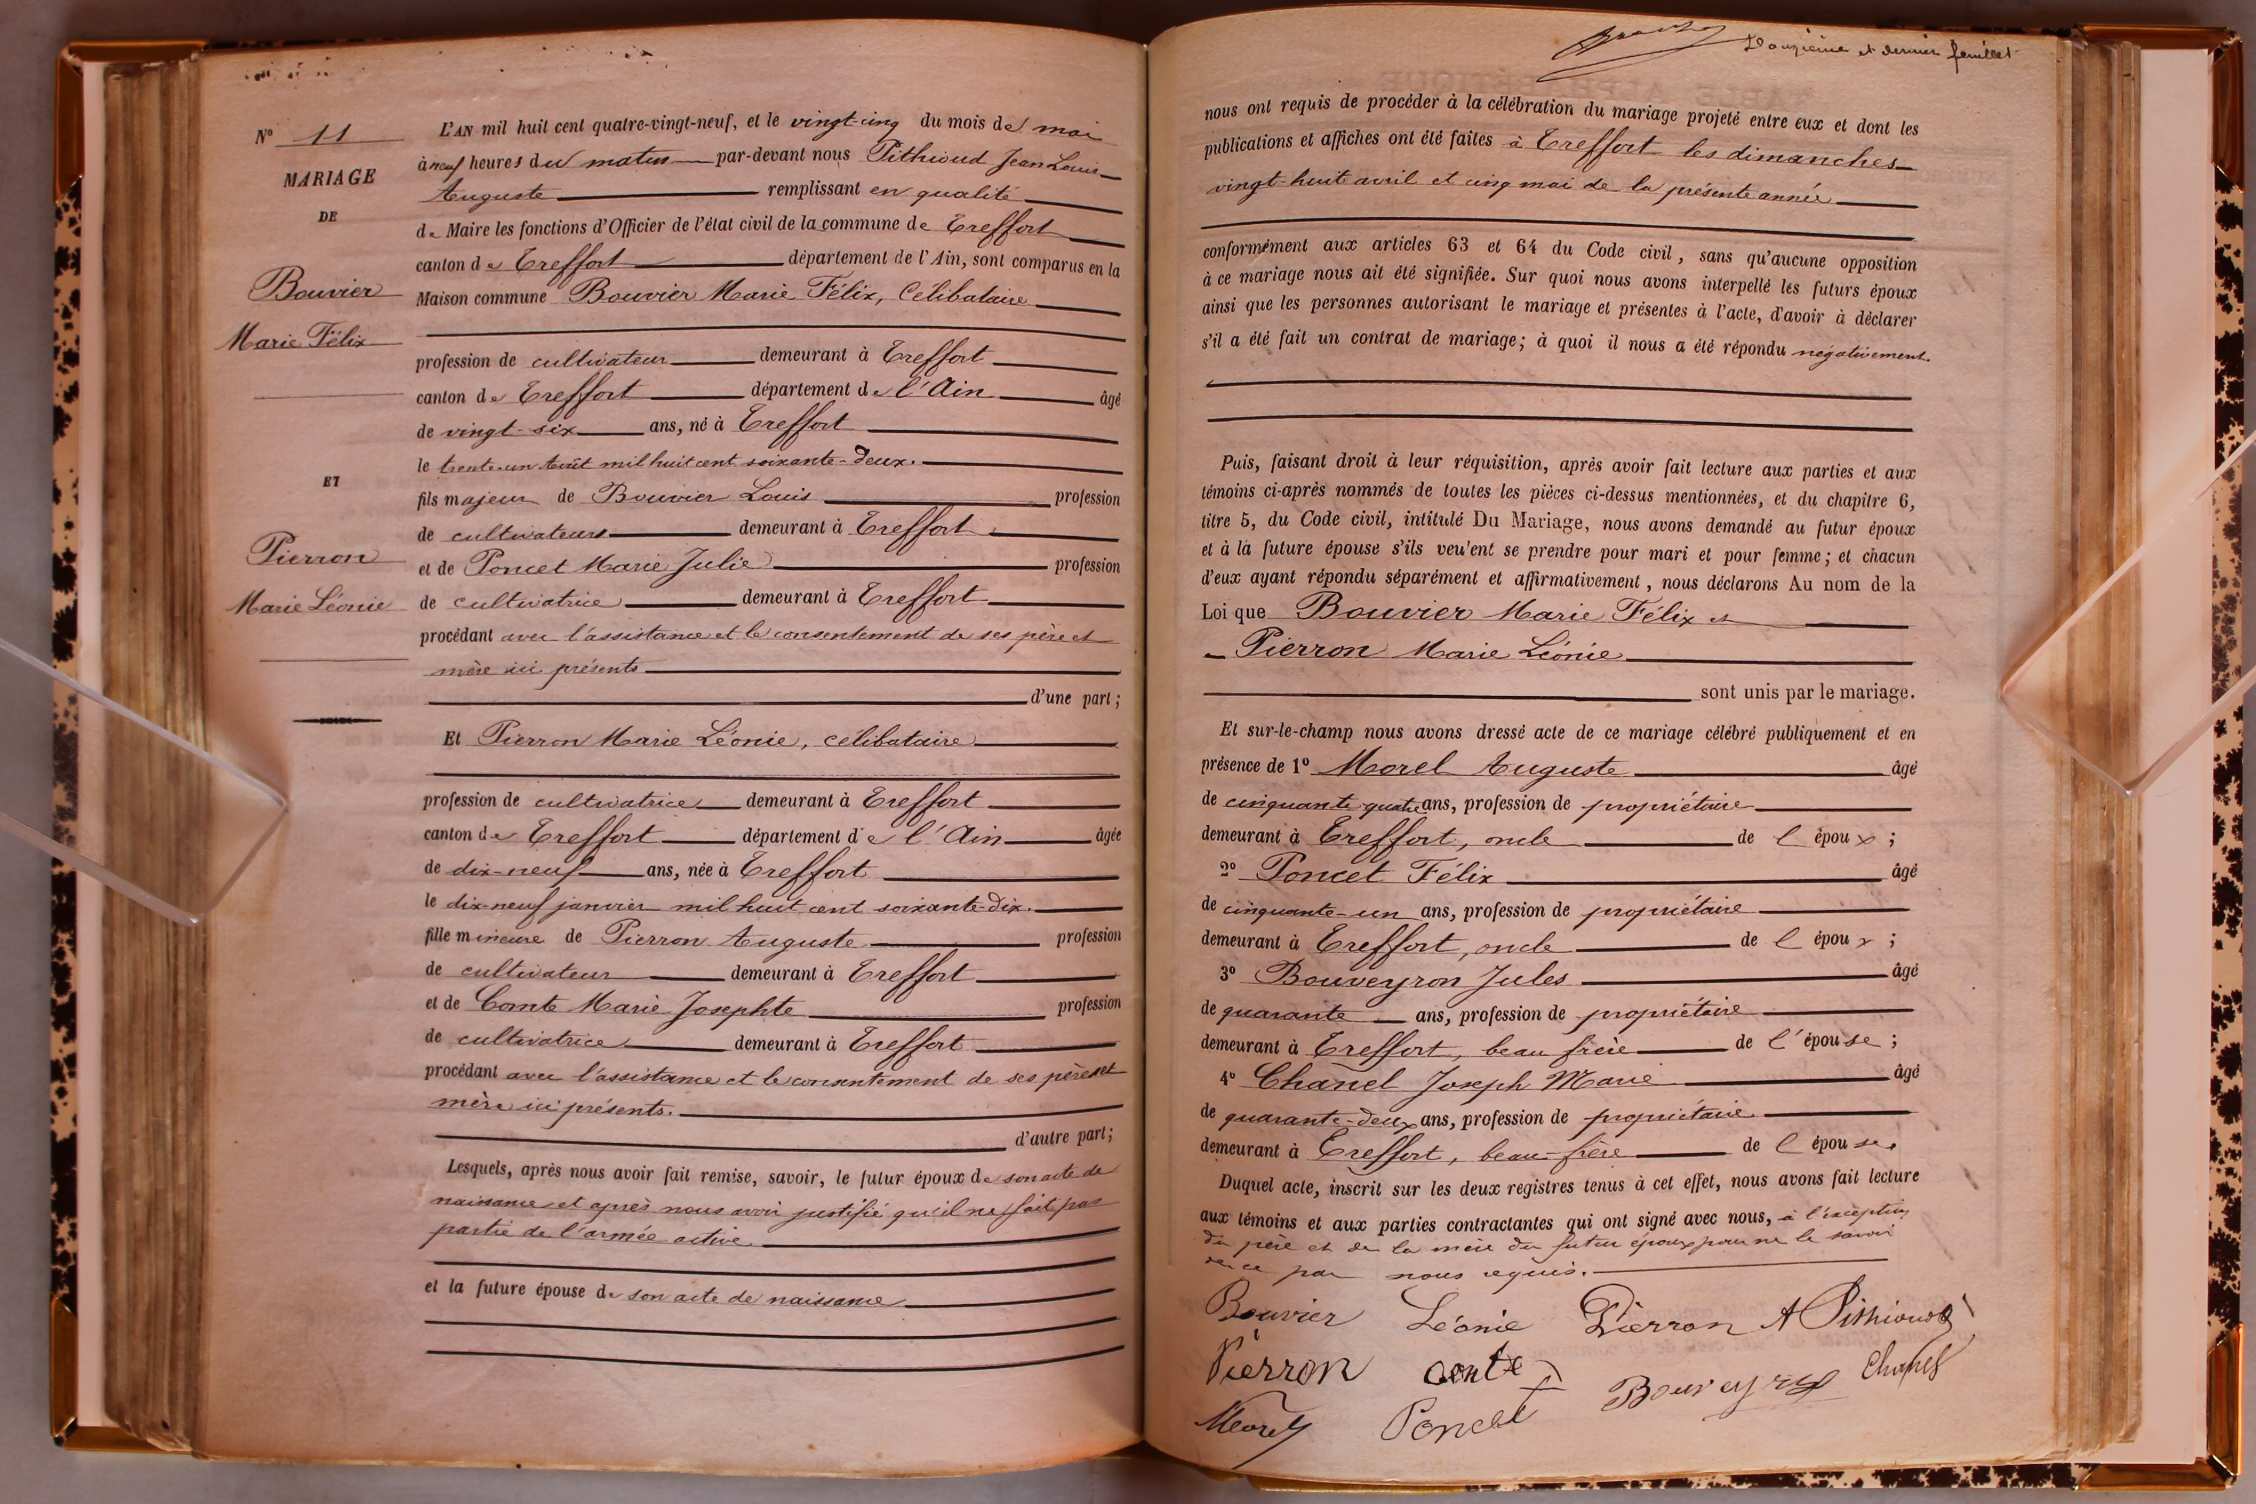 N° 11
MARIAGE
DE
Bouvier
Marie Félix
ET
Pierron
Marie Léonie
L'AN mil huit cent quatre-vingt-neuf, et le vingt-cinq du mois de mai
à neuf heures du matin par-devant nous Pithioud Jean Louis
Auguste remplissant en qualité
de Maire les fonctions d'Officier de l'état civil de la commune de Treffort
canton de Treffort département de l'Ain, sont comparus en la
Maison commune Bouvier Marie Félix, Célibataire
profession de cultivateur demeurant à Treffort
canton de Treffort département de l'Ain âgé
de vingt-six ans, né à Treffort
le trente-un Août mil huit cent soixante-deux.
fils majeur de Bouvier Louis profession
de cultivateurs demeurant à Treffort
et de Poncet Marie Julie profession
de cultivatrice demeurant à Treffort
procédant avec l'assistance et le consentement de ses père et
mère ici présents
d'une part;
Et Pierron Marie Léonie, célibataire
profession de cultivatrice demeurant à Treffort
canton de Treffort département de l'Ain âgée
de dix-neuf ans, née à Treffort
le dix-neuf janvier mil huit cent soixante-dix.
fille mineure de Pierron Auguste profession
de cultivateur demeurant à Treffort
et de Comte Marie Josephte profession
de cultivatrice demeurant à Treffort
procédant avec l'assistance et le consentement de ses père et
mère ici présents.
d'autre part;
Lesquels, après nous avoir fait remise, savoir, le futur époux de son acte de
naissance et après nous avoir justifié qu'il ne fait pas
partie de l'armée active
et la future épouse de son acte de naissance
Douzième et dernier feuillet
nous ont requis de procéder à la célébration du mariage projeté entre eux et dont les
publications et affiches ont été faites à Treffort les dimanches
vingt-huit avril et cinq mai de la présente année
conformément aux articles 63 et 64 du Code civil, sans qu'aucune opposition
à ce mariage nous ait été signifiée. Sur quoi nous avons interpellé les futurs époux
ainsi que les personnes autorisant le mariage et présentes à l'acte, d'avoir à déclarer
s'il a été fait un contrat de mariage; à quoi il nous a été répondu négativement.
Puis, faisant droit à leur réquisition, après avoir fait lecture aux parties et aux
témoins ci-après nommés de toutes les pièces ci-dessus mentionnées, et du chapitre 6,
titre 5, du Code civil, intitulé Du Mariage, nous avons demandé au futur époux
et à la future épouse s'ils veulent se prendre pour mari et pour femme; et chacun
d'eux ayant répondu séparément et affirmativement, nous déclarons Au nom de la
Loi que Bouvier Marie Félix et
Pierron Marie Léonie
sont unis par le mariage.
Et sur-le-champ nous avons dressé acte de ce mariage célébré publiquement et en
présence de 1° Morel Auguste âgé
de cinquante quatre ans, profession de propriétaire
demeurant à Treffort, oncle de l époux;
2° Poncet Félix âgé
de cinquante-un ans, profession de propriétaire
demeurant à Treffort, oncle de l époux;
3° Bouveyron Jules âgé
de quarante ans, profession de propriétaire
demeurant à Treffort, beau frère de l'épouse;
4° Chanel Joseph Marie âgé
de quarante-deux ans, profession de propriétaire
demeurant à Treffort, beau-frère de l épouse.
Duquel acte, inscrit sur les deux registres tenus à cet effet, nous avons fait lecture
aux témoins et aux parties contractantes qui ont signé avec nous, à l'exception
du père et de la mère du futur époux pour ne le savoir
de ce par nous requis.
Bouvier Léonie Pierron A Pithioud
Pierron conte Bouveyron Chanel
Morel Poncet